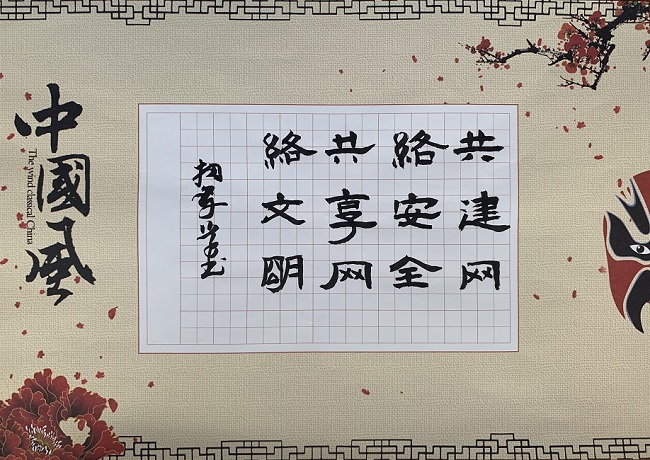 共建网
络安全
共享网
络文明
中國風
The wind classical China